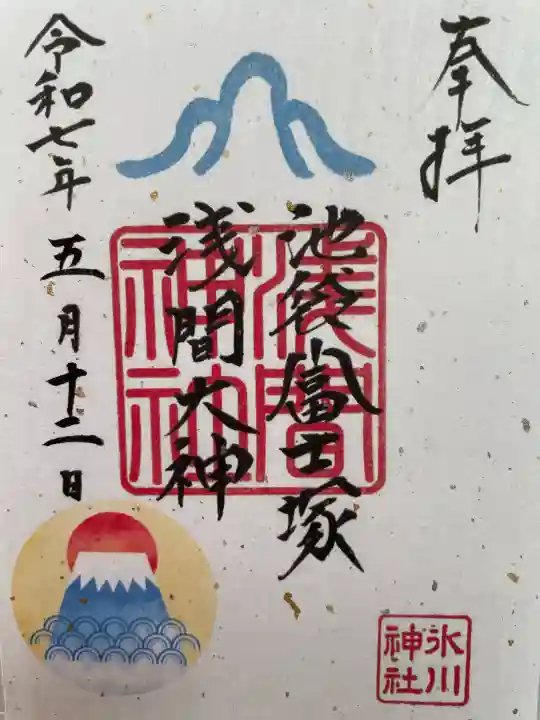 奉拝
池袋富士塚
浅間大神
浅間
神社
令和七年
五月十二日
氷川
神社